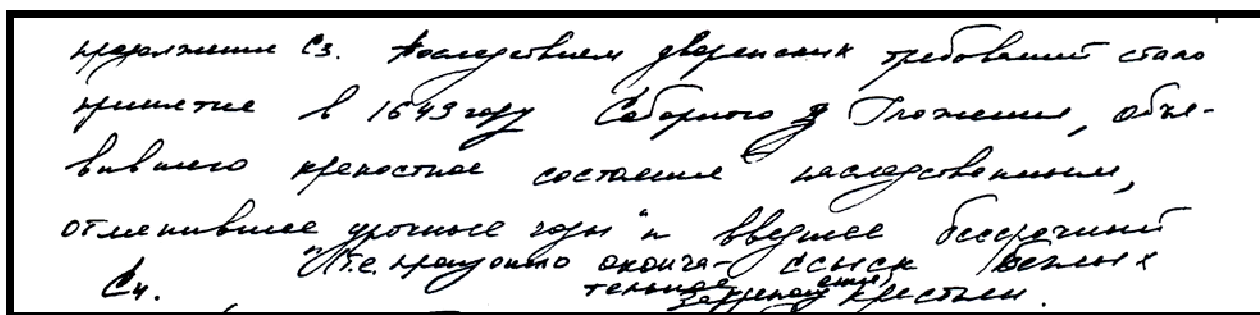 продолжение С3. Последствием дворянских требований стало
принятие в 1649 году Соборного Уложения, объя-
вившего крепостное состояние наследственным,
отменившее „урочные годы" и введшее бессрочный
(т.е. произошло оконча- сыск беглых
С4. тельное закрепощение) крестьян.